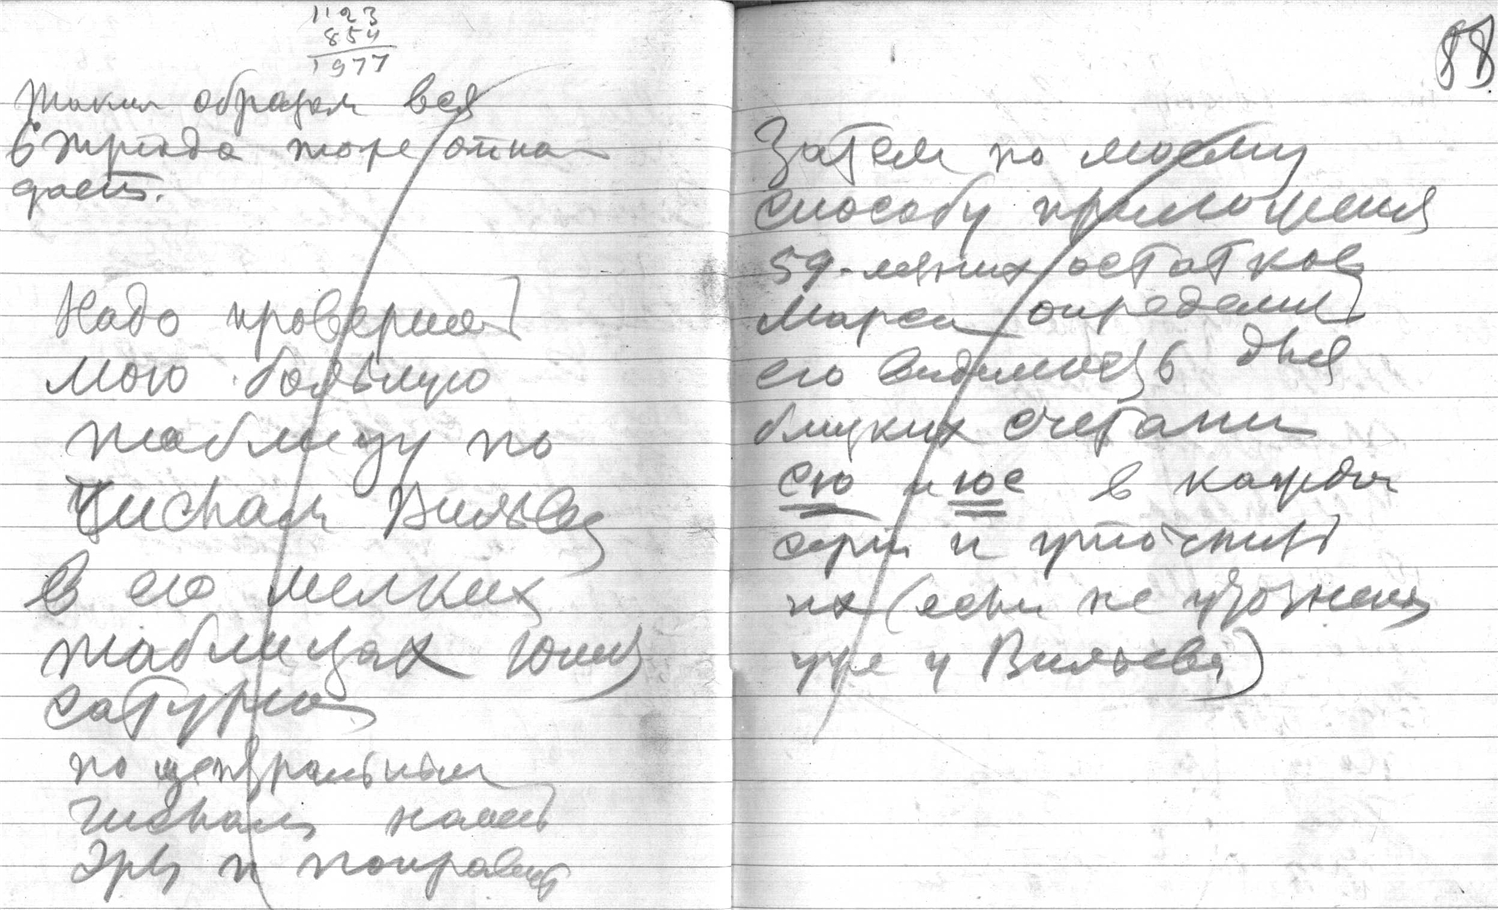 1123
854
1977
Таким образом вся
6 триада тоже отпа-
дает.
Надо проверить
мою большую
таблицу по
числам Вильева
в его мелких
таблицах Юпит
Сатурна
по центральным
числам нашей
Эры и поправить
88
Затем по моему
способу приложения
59-летних остатков
Марса определить
его видимость в дня
близких сочетани
сю и юс в каждой
серии и уточнить
их (если не уточнены
уже у Вильева)